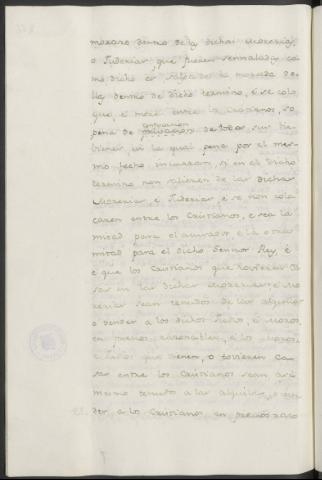 moraro dentro de las dichas Morerias,
o Juderias, que fueren sennaladas, co
mo dicho es salga de la morada de
llas dentro de dicho termino, é se colo
que, é more entre los Cristianos, so
pena de confiscacion de todos sus bie
bienes, en la qual pena por el mes
mo fecho incurran, si en el dicho
termino non salieren de las dichas
Morerias, é Juderias, é se non colo
caren entre los Cristianos, é sea la
mitad para el acusador é la otra
mitad para el dicho Sennor Rey, é
é que los Cristianos que hovieren Ca
sas en las dichas Morerias, é
Juderias sean tenudos de las alquilar
o vender a los dichos Judios, é Moros,
en precios razonables, é los Moros,
é Judios que tienen, o tovieren ca
sas entre los Cristianos sean assi
mesmo tenudos a las alquilar, o ven
der, a los Cristianos en precios razo